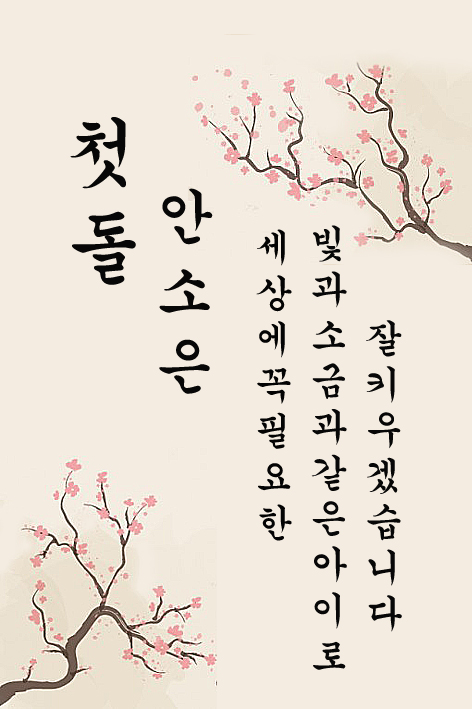 첫돌
안소은
세상에꼭필요한
빛과소금과같은아이로
잘키우겠습니다